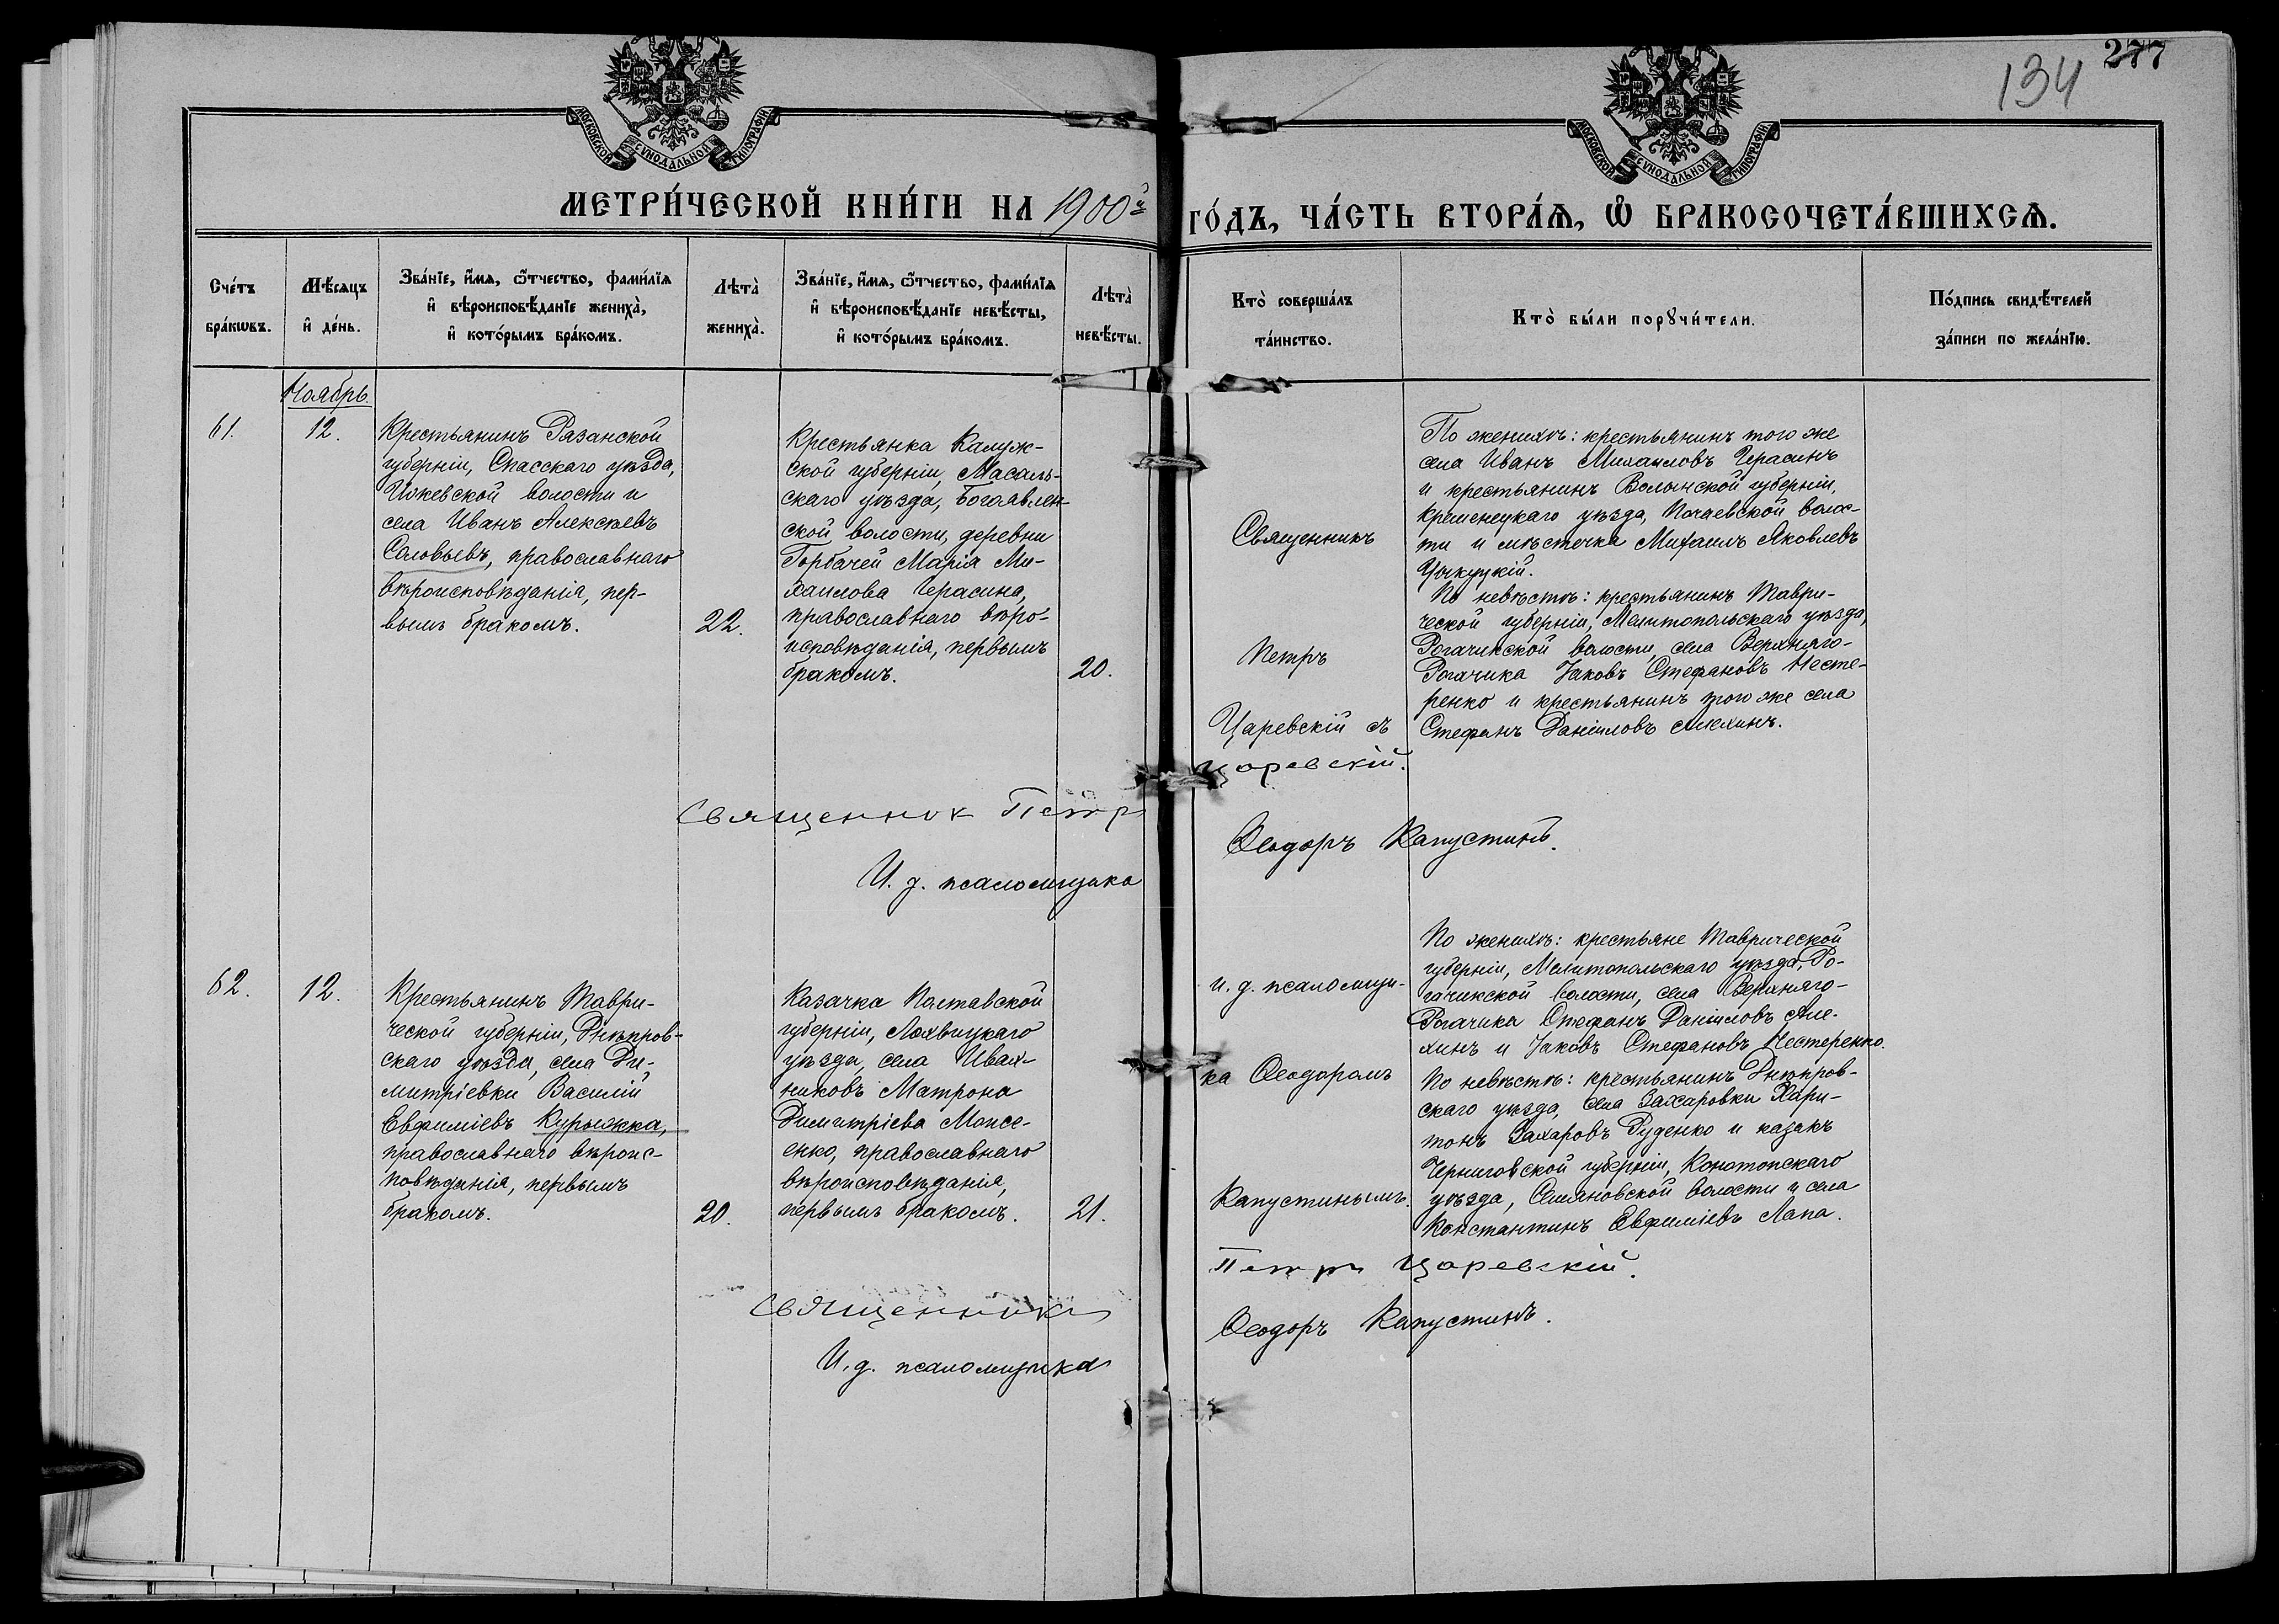 134
277
МОСКОВСКОЙ СУНОДАЛЬНОЙ ТИПОГРАФІИ
МОСКОВСКОЙ СУНОДАЛЬНОЙ ТИПОГРАФІИ
МЕТРИ́ЧЕСКОЙ КНИ́ГИ НА 1900й ГО́ДЪ, ЧА́СТЬ ВТОРА́Ѧ, Ѽ БРАКОСОЧЕТА́ВШИХСѦ.
Сче́тъ
бра́кѡвъ.
Мѣ́сѧцъ
и҆ де́нь.
Зва́нїе, и҆́мѧ, ѻ҆́тчество, фами́лїѧ
и҆ вѣроисповѣ́данїе жениха̀,
и҆ кото́рымъ бра́комъ.
Лѣта̀
жениха̀.
Зва́нїе, и҆́мѧ, ѻ҆́тчество, фами́лїѧ
и҆ вѣроисповѣ́данїе невѣ́сты,
и҆ кото́рымъ бра́комъ.
Лѣта̀
невѣ́сты.
Кто̀ соверша́лъ
та́инство.
Кто̀ бы́ли порꙋчи́тели.
По́дпись свидѣ́телей
за́писи по жела́нїю.
Ноябрь.
61.
12.
Крестьянинъ Рязанской
губерніи, Спасскаго уѣзда,
Ижевской волости и
села Иванъ Алексѣевъ
Соловьевъ, православнаго
вѣроисповѣданія, пер-
вымъ бракомъ.
22.
Крестьянка Калуж-
ской губерніи, Масаль-
скаго уѣзда, Богоявлен-
ской волости, деревни
Горбачей Марія Ми-
хаилова Черасина,
православнаго вѣро-
исповѣданія, первымъ
бракомъ.
20.
Священникъ
Петръ
Царевскій съ
По женихѣ: крестьянинъ того же
села Иванъ Михаиловъ Черасинъ
и крестьянинъ Волынской губерніи,
Кременецкаго уѣзда, Почаевской волос-
ти и мѣстечка Михаилъ Яковлевъ
По невѣстѣ: крестьянинъ Таври-
ческой губерніи, Мелитопольскаго уѣзда,
Рогачикской волости, села Верхняго-
Рогачика Іаковъ Стефановъ Несте-
ренко и крестьянинъ того же села
Стефанъ Даніиловъ Алехинъ.
Священник Петр Царевскій.
И. д. псаломщика Ѳеодоръ Капустинъ.
62.
12.
Крестьянинъ Таври-
ческой губерніи, Днѣпров-
скаго уѣзда, села Ди-
митріевки Василій
Евфиміевъ Курыжка,
православнаго вѣроис-
повѣданія, первымъ
бракомъ.
20.
Казачка Полтавской
губерніи, Лохвицкаго
уѣзда, села Ивах-
никовъ Матрона
Димитріева Моисе-
енко, православнаго
вѣроисповѣданія,
первымъ бракомъ.
21.
и. д. псаломщи-
ка Ѳеодоромъ
Капустинымъ.
По женихѣ: крестьяне Таврической
губерніи, Мелитопольскаго уѣзда, Ро-
гачикской волости, села Верхняго-
Рогачика Стефанъ Даніиловъ Але-
хинъ и Іаковъ Стефановъ Нестеренко.
По невѣстѣ: крестьянинъ Днѣпров-
скаго уѣзда, села Захаровки Хари-
тонъ Захаровъ Руденко и казакъ
Черниговской губерніи, Конотопскаго
уѣзда, волости и села
Константинъ Евфиміевъ Лапа.
Священникъ Петръ Царевскій.
И. д. псаломщика Ѳеодоръ Капустинъ.